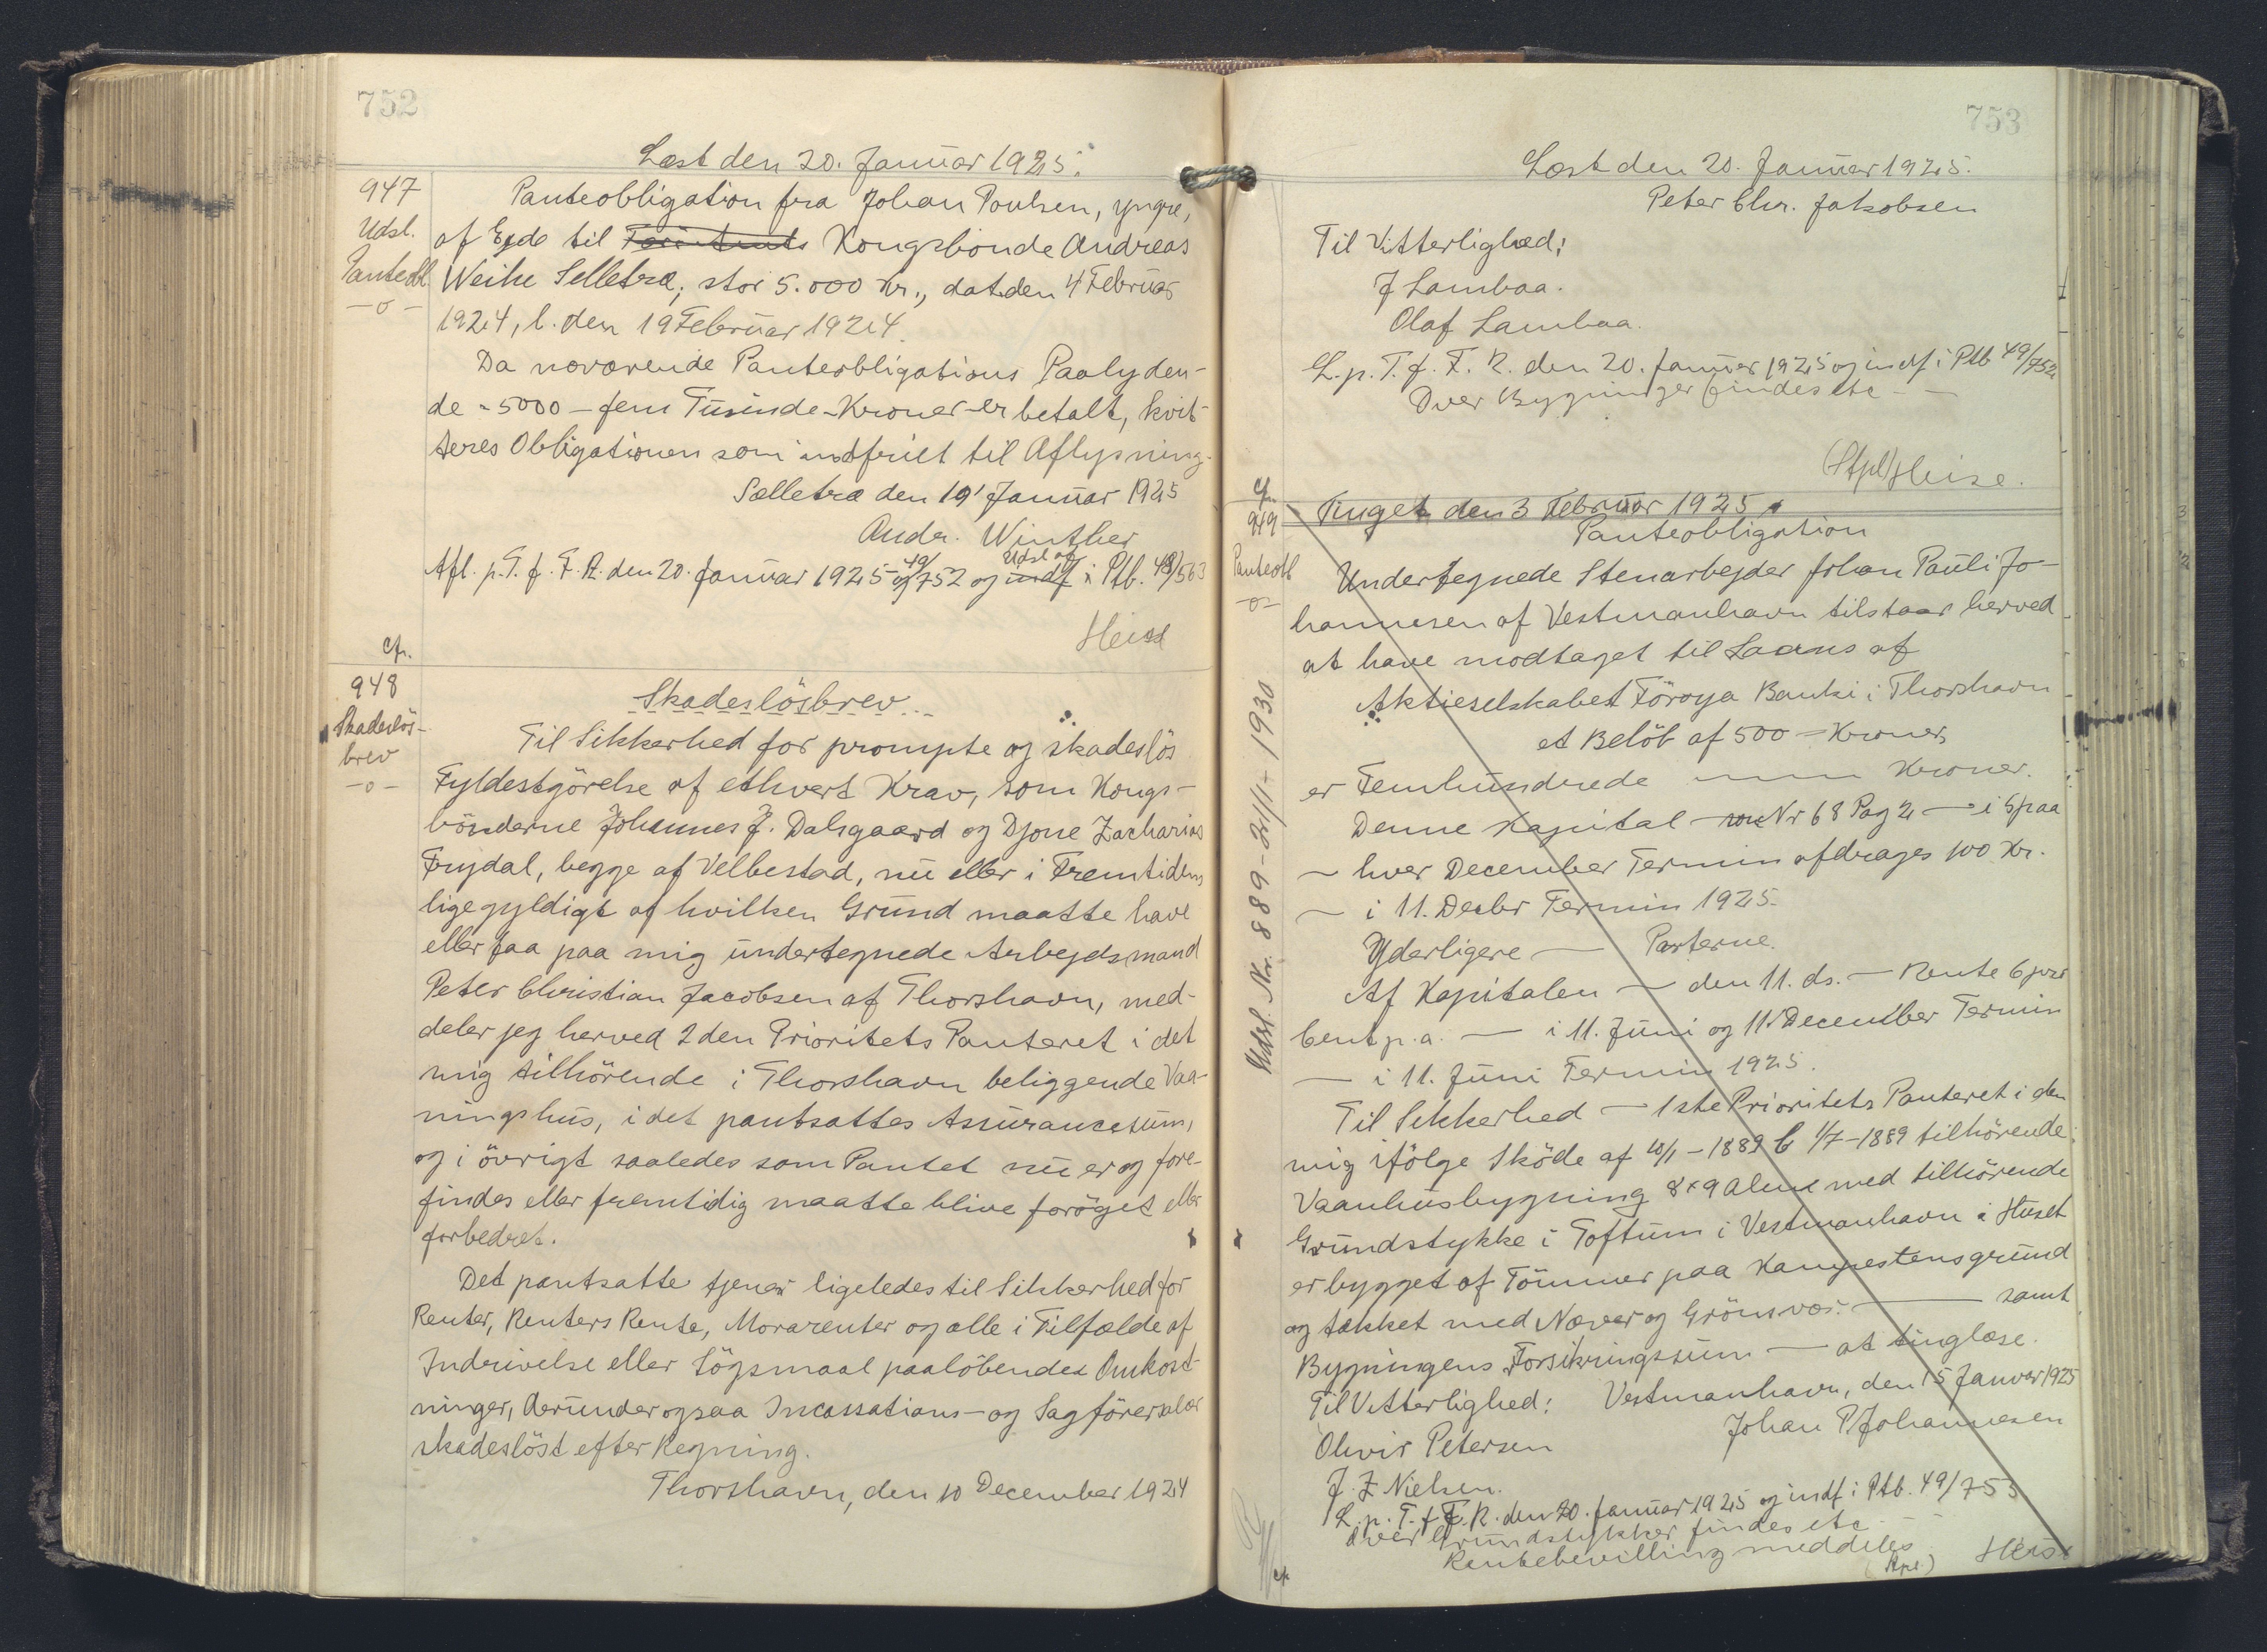 752
Læst den 20. Januar 1925.
947
Udsl.
Panteobl.
-o-
Panteobligation fra Johan Poulsen, yngre,
af Ejde til Kongsbonde Andreas
Weihe Selletræ, stor 5.000 Kr., dat. den 4 Februar
1924, l. den 19 Februar 1924.
Da nærværende Panteobligations Paalyden-
de - 5000 - fem Tusinde - Kroner er betalt, kvit-
teres Obligationen som indfriet til Aflysning.
Sælletræ den 19' Januar 1925
Andr. Winther
Afl. p. T. f. F. R. den 20. Januar 1925 og 49/752 og indf Udsl af i Ptb. 48/563
Heise
cfr.
948
Skadeslös-
brev
-o-
Skadeslösbrev
Til Sikkerhed for prompte og skadeslös
Fyldestgörelse af ethvert Krav, som Kongs-
bönderne Johannes J. Dalsgaard og Djone Zacharias
Frydal, begge af Velbestad, nu eller i Fremtiden
ligegyldigt af hvilken Grund maatte have
eller faa paa mig undertegnede Arbejdsmand
Peter Christian Jacobsen af Thorshavn, med-
deler jeg herved 2den Prioritets Panteret i det
mig tilhörende i Thorshavn beliggende Vaa-
ningshus, i det pantsattes Assurancesum,
og i övrigt saaledes som Pantet nu er og fore-
findes eller fremtidig maatte blive foröget eller
forbedret.
Det pantsatte tjener ligeledes til Sikkerhed for
Renter, Renters Rente, Morarenter og alle i Tilfælde af
Inddrivelse eller Sögsmaal paalöbende Omkost-
ninger, derunder ogsaa Incassations- og Sagförersalær
skadeslöst efter Regning.
Thorshavn, den 10 December 1924
753
Læst den 20. Januar 1925.
Peter Chr. Jakobsen
Til Vitterlighed:
J Lambaa.
Olaf Lambaa.
L. p. T. f. F. R. den 20. Januar 1925 og indf. i Ptb 49/752
Over Bygninger findes etc - -
(Stpl) Heise.
cfr.
949
Panteobl
-o-
Tinget den 3 Februar 1925
Panteobligation
Undertegnede Stenarbejder Johan Pauli Jo-
hannesen af Vestmanhavn tilstaar herved
at have modtaget til Laans af
Aktieselskabet Föroya Banki i Thorshavn
et Belöb af 500 - Kroner,
er Femhundrede Kroner.
Denne Kapital - Nr 68 Pag 2 - i Spaa
- hver December Termin afdrages 100 Kr.
- i 11. Decbr Termin 1925.
Yderligere - Parterne.
Af Kapitalen - den 11. ds. - Rente 6 pro
Cent p.a. - i 11. Juni og 11. December Termin
- i 11. Juni Termin 1925.
Til Sikkerhed - 1ste Prioritets Panteret i den
mig ifölge Sköde af 10/1 - 1889 l 1/7 - 1889 tilhörende
Vaanhusbygning 8 x 9 Alen med tilhörende
Grundstykke i Toftum i Vestmanhavn i Huset
er bygget af Tömmer paa Kampestensgrund
og tækket med Næver og Grönsvær. - samt
Bygningens Forsikringssum - at tinglæse.
Til Vitterlighed: Vestmanhavn, den 15 Januar 1925
Olivir Petersen Johan P Johannesen
J. Z Nielsen.
L. p. T. f. F. R. den 20. Januar 1925 og indf. i Ptb. 49/753
Over Grundstykker findes etc - -
Rentebevilling meddeles
(Stpl.) Heise
Udsl. Nr. 889 - 21/11 1930
cfr